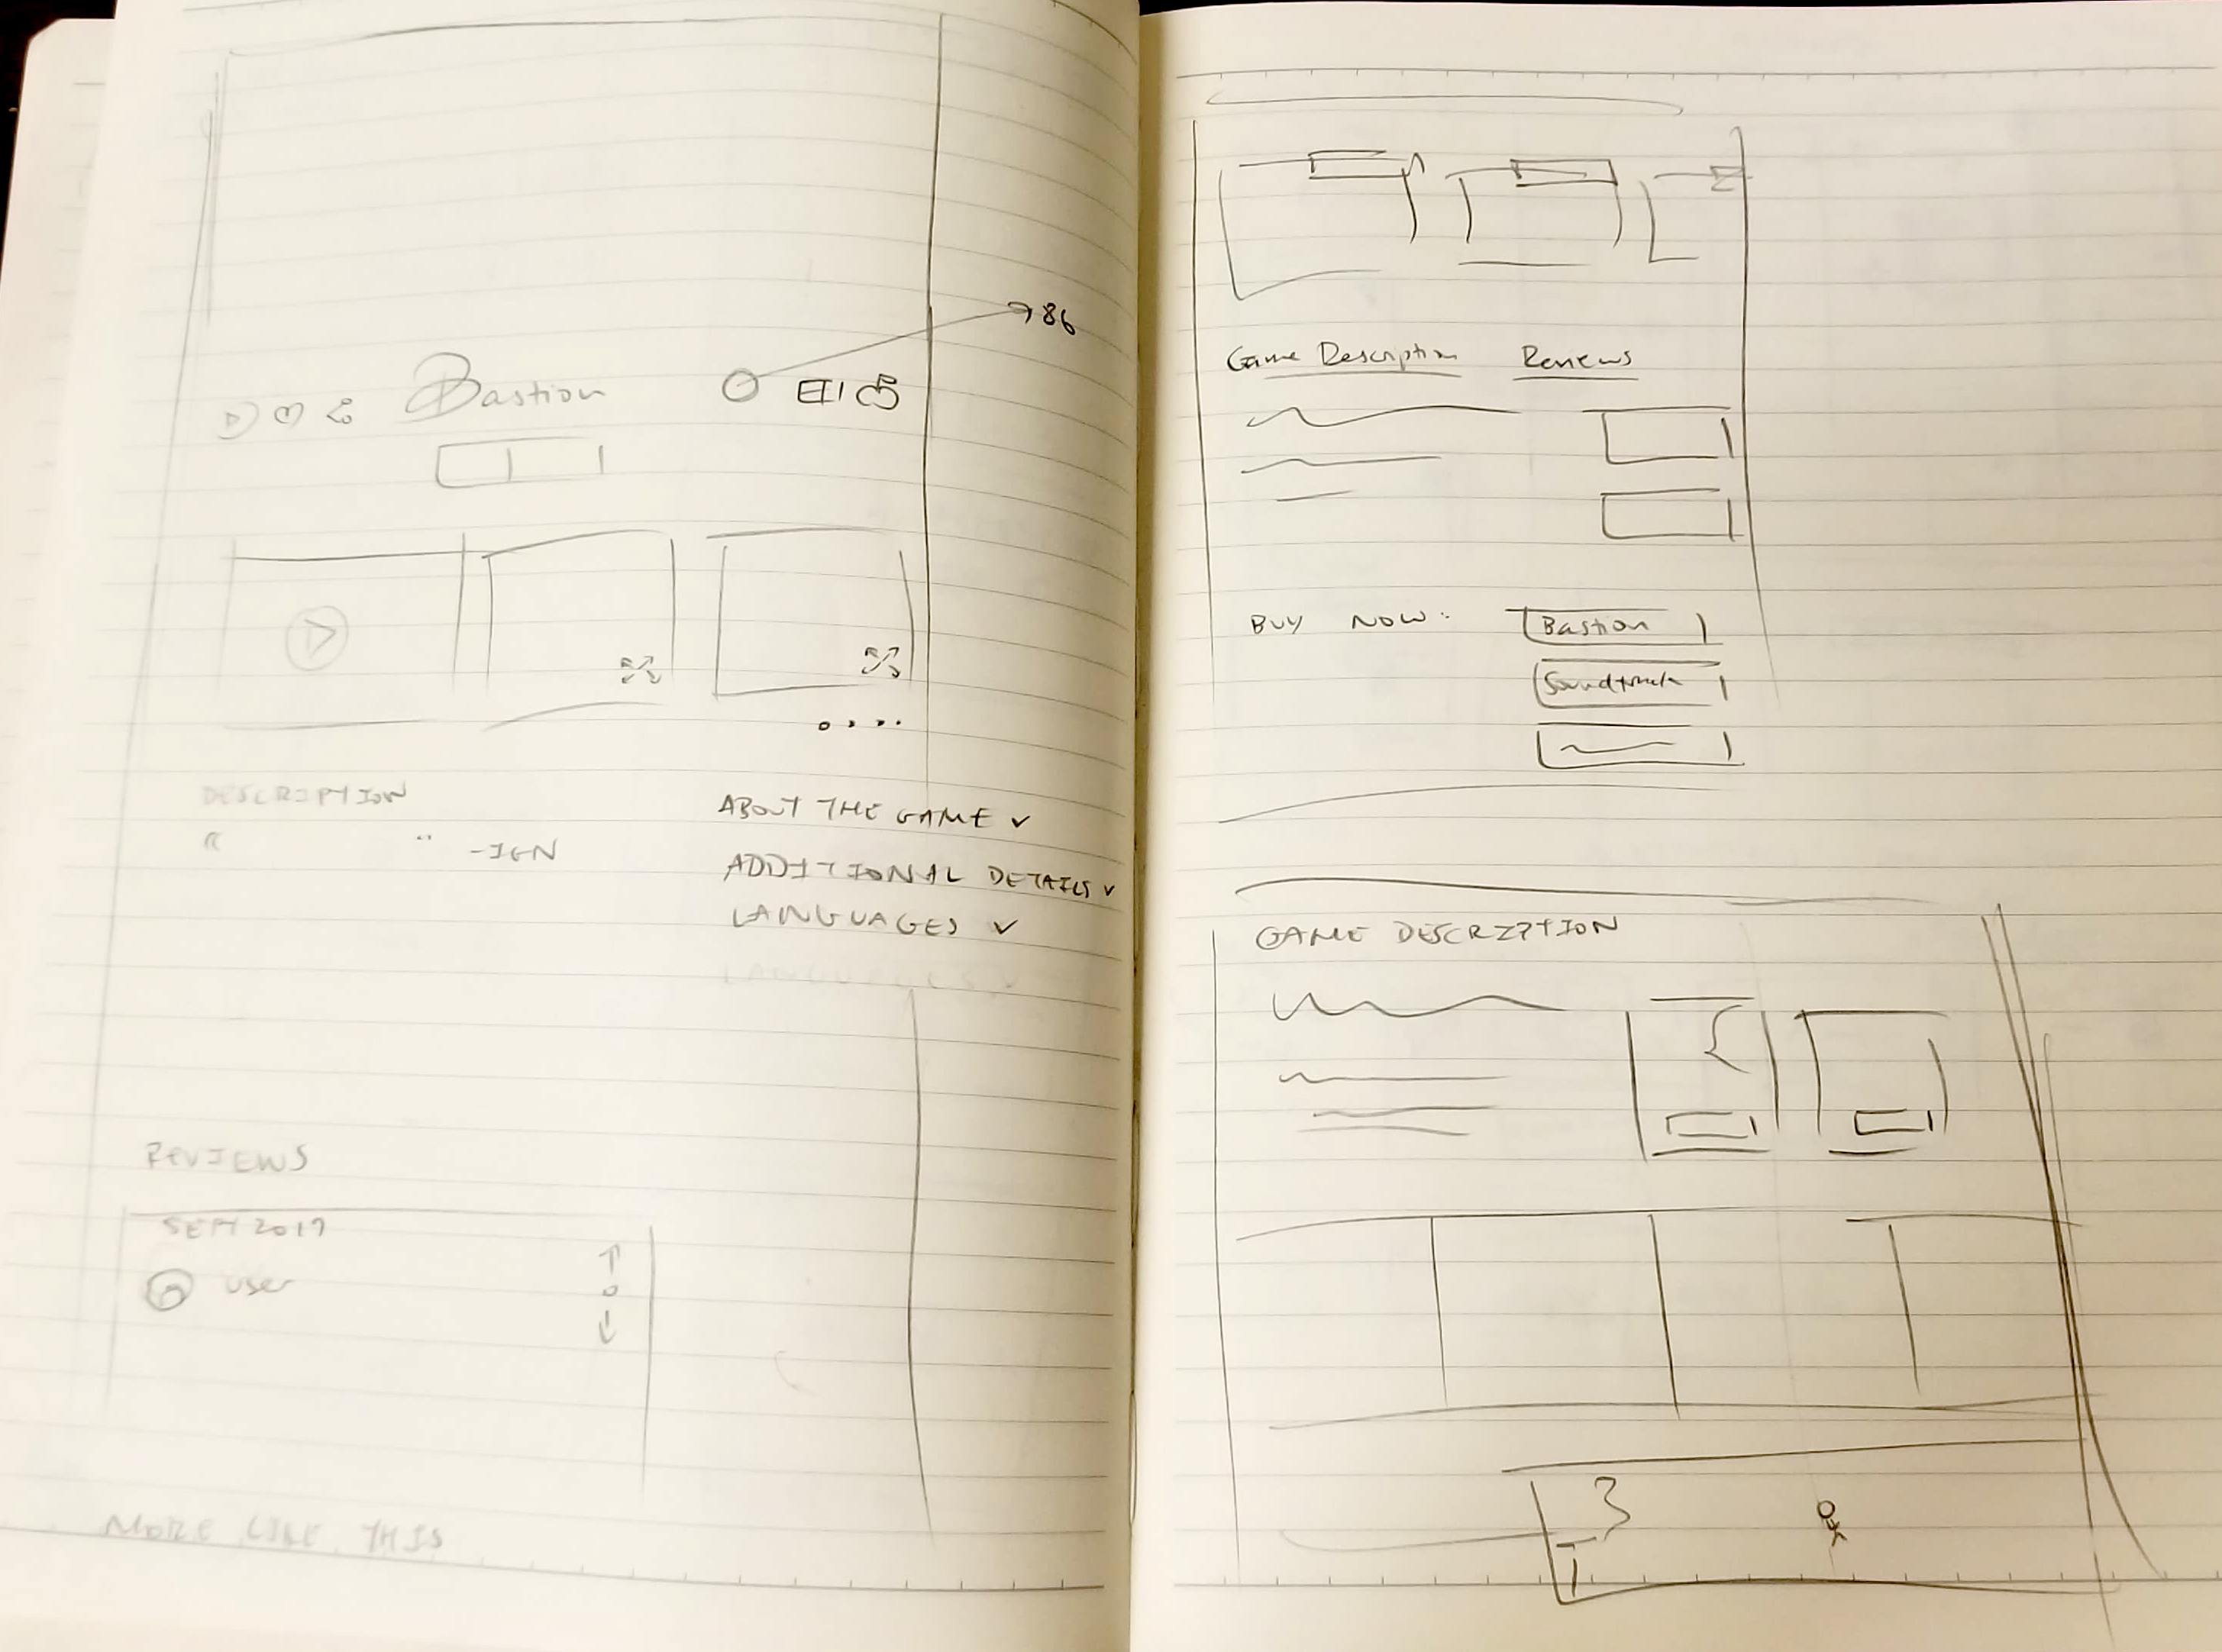 86
Bastion
DESCRIPTION
“ ” -IGN
ABOUT THE GAME
ADDITIONAL DETAILS
LANGUAGES
LANGUAGES
REVIEWS
SEPT 2019
user
MORE LIKE THIS
Game Description Reviews
BUY NOW: Bastion
Soundtrack
GAME DESCRIPTION